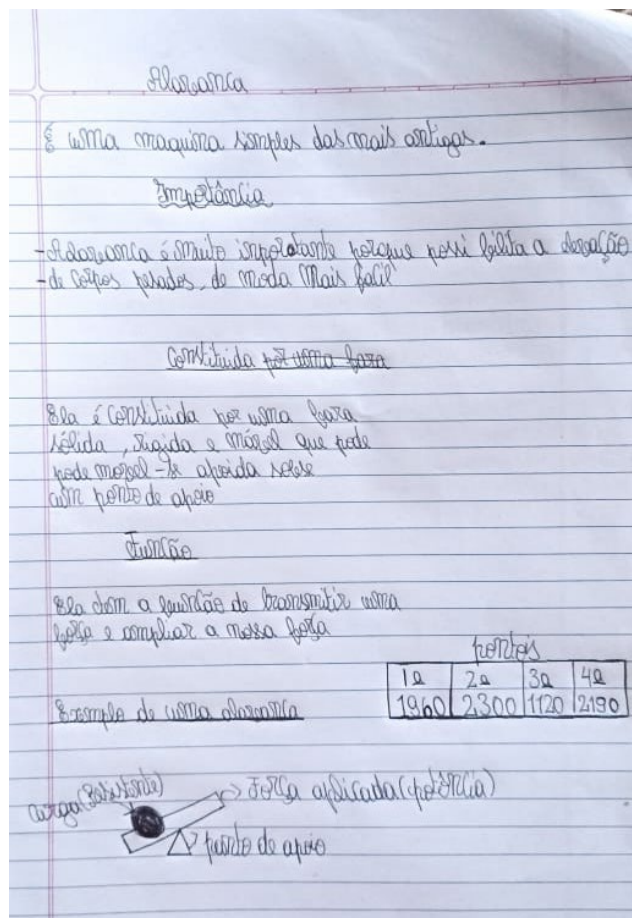 Alavanca
É uma maquina simples das mais antigas.
Importância
-Alavanca é muito inportante porque possi bilita a elevação
-de corpos pesados, de moda Mais facil
Constituida por uma bara
Ela é constituida por uma bara
sólida, rigida e móvel que pode
pode movel-se apoida sobre
um ponto de apoio
Função
Ela tem a função de transmitir uma
força e ampliar a nossa força
pontos
1a 2a 3a 4a
1960 2300 1120 2190
Exemplo de uma alavanca
carga(Resistente)
Força aplicada(potência)
ponto de apoio